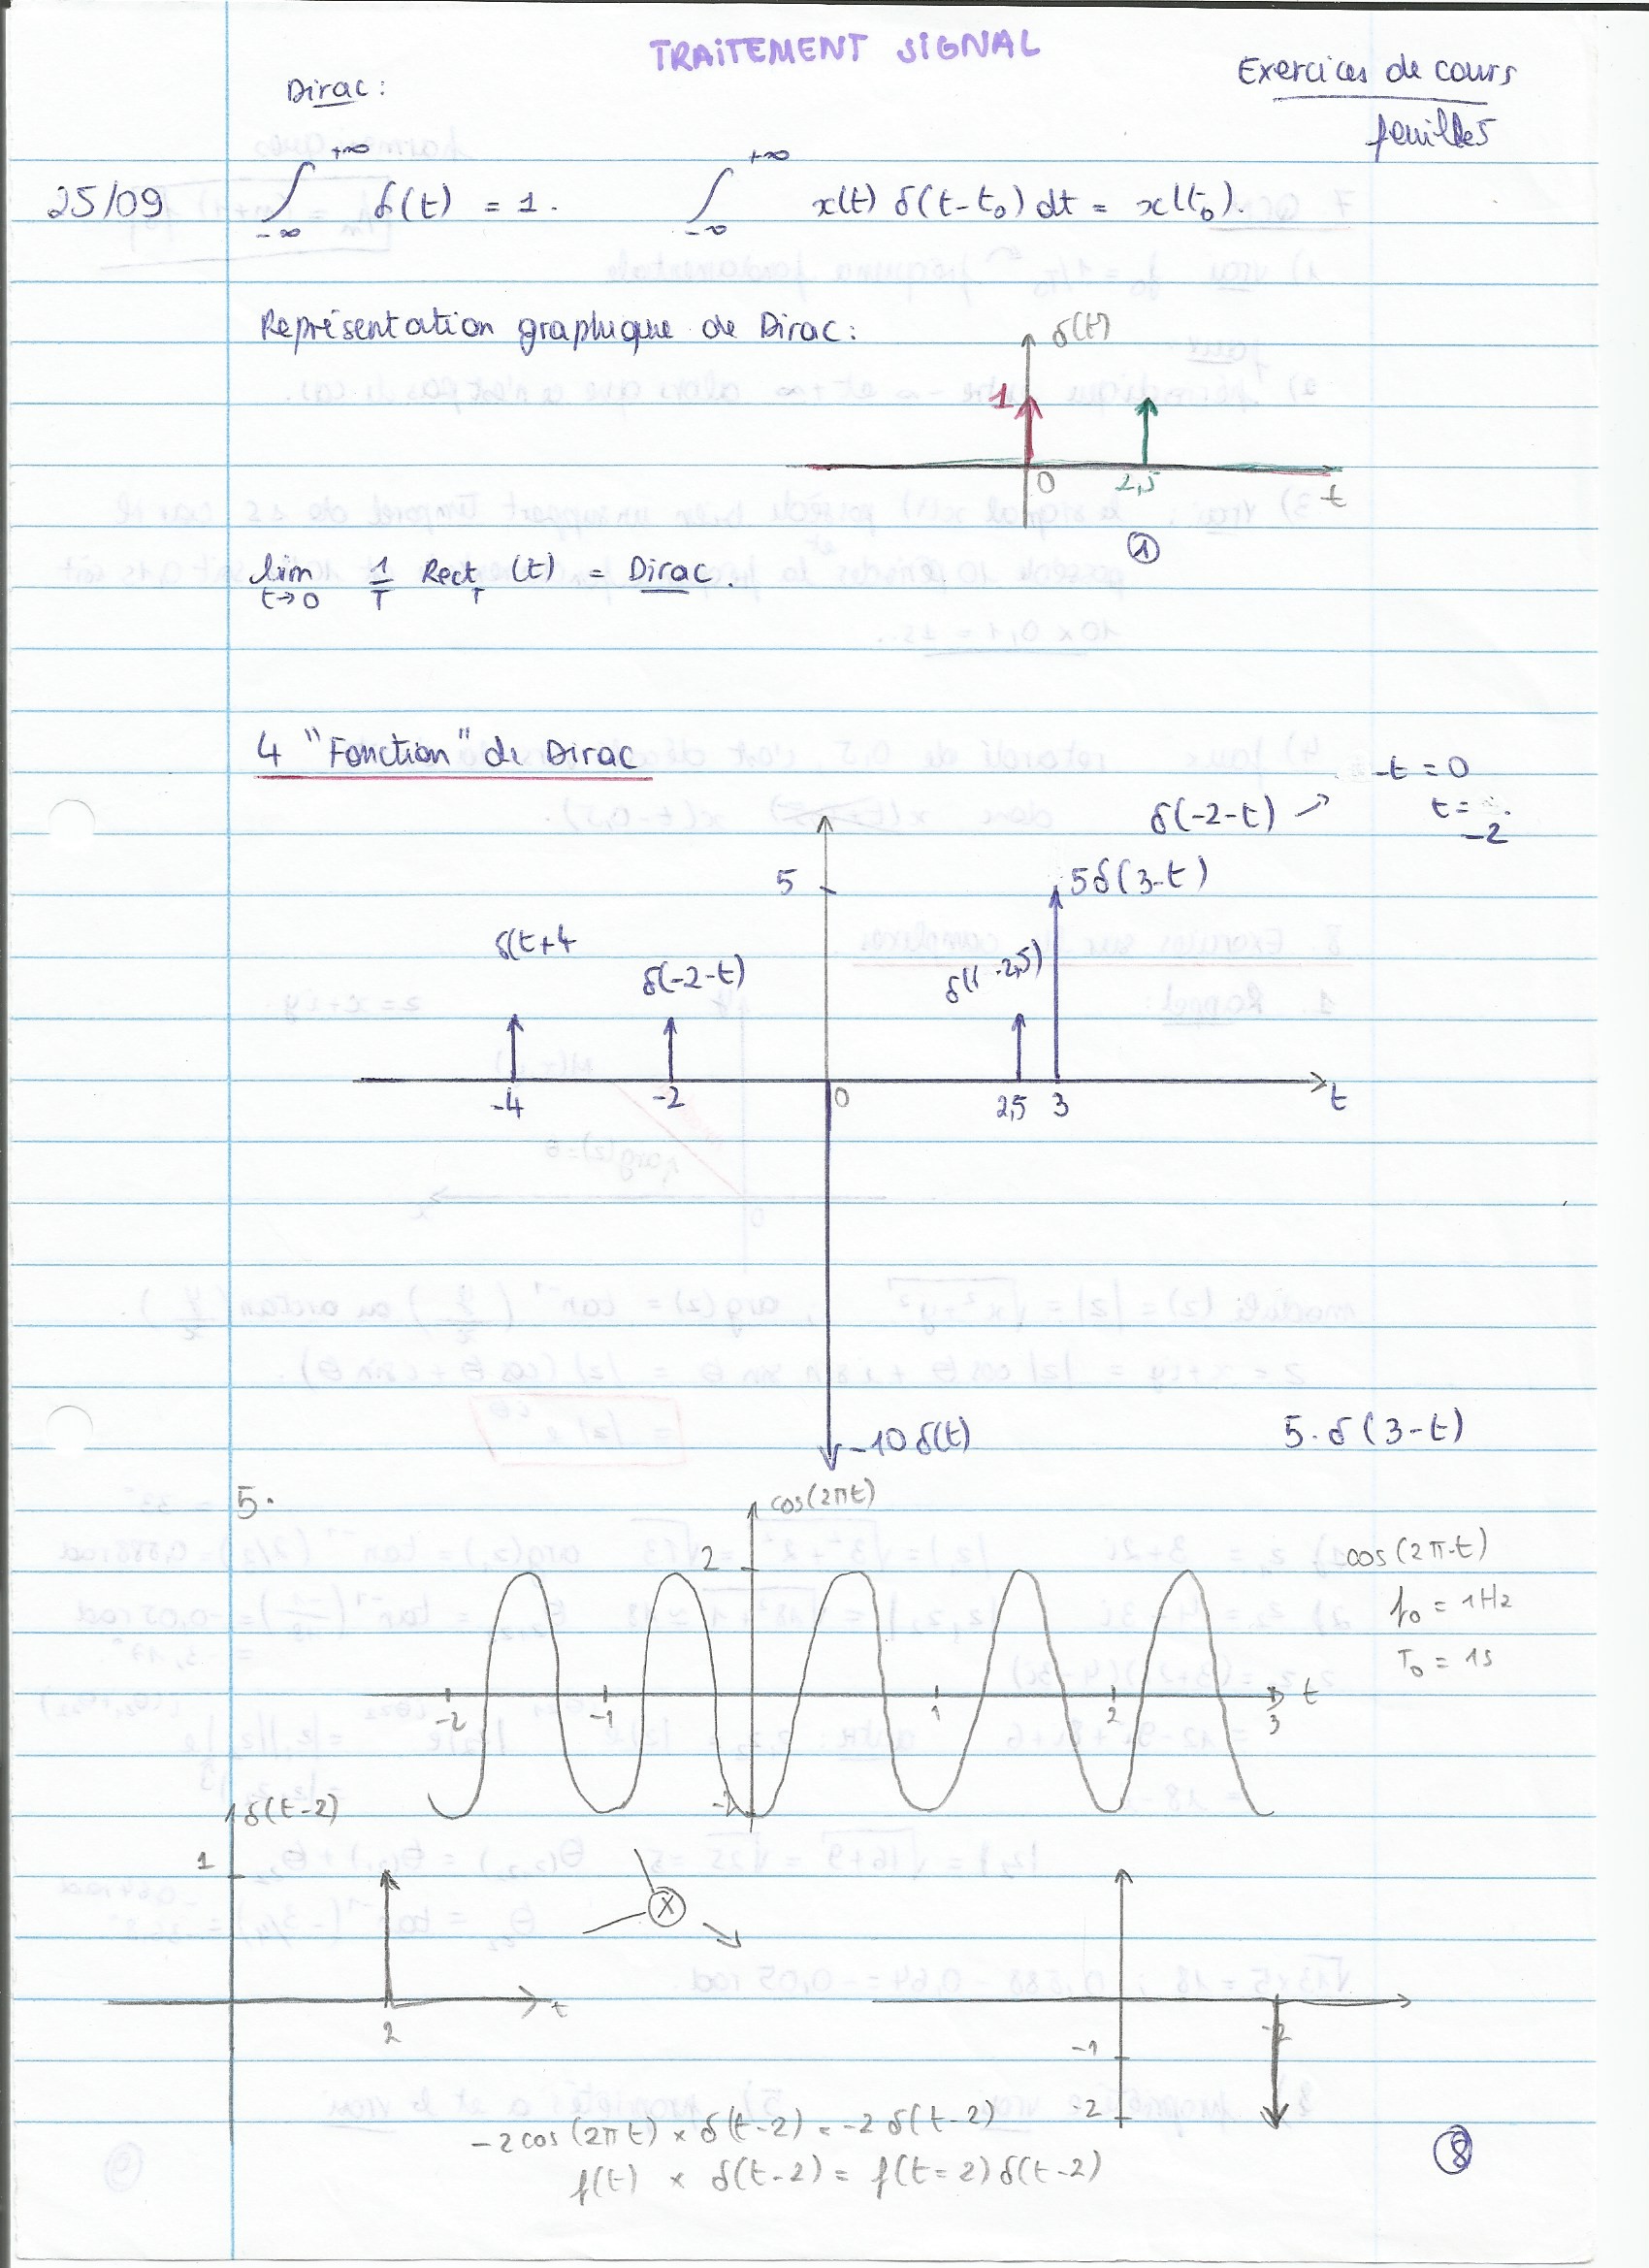 TRAITEMENT SIGNAL
Exercices de cours
feuille 5
Dirac :
25/09 ∫_{-∞}^{+∞} δ(t) = 1. ∫_{-∞}^{+∞} x(t) δ(t-t₀) dt = x(t₀).
Représentation graphique de Dirac :
δ(t)
1
0 2,5 t
①
lim_{t→0} 1/T Rect_T (t) = Dirac.
4 "Fonction" de Dirac
-t = 0
δ(-2-t) ↗ t = -2
5 5δ(3-t)
δ(t+4
δ(-2-t) -2,5)
-4 -2 0 2,5 3 t
-10 δ(t) 5.δ(3-t)
5. cos(2πt)
2 cos(2π.t)
f₀ = 1Hz
T₀ = 1s
-2 -1 1 2 3 t
δ(t-2)
1
X
2 t
-2
-1
-2
-2cos(2πt) × δ(t-2) = -2 δ(t-2)
f(t) × δ(t-2) = f(t=2) δ(t-2)
⑧